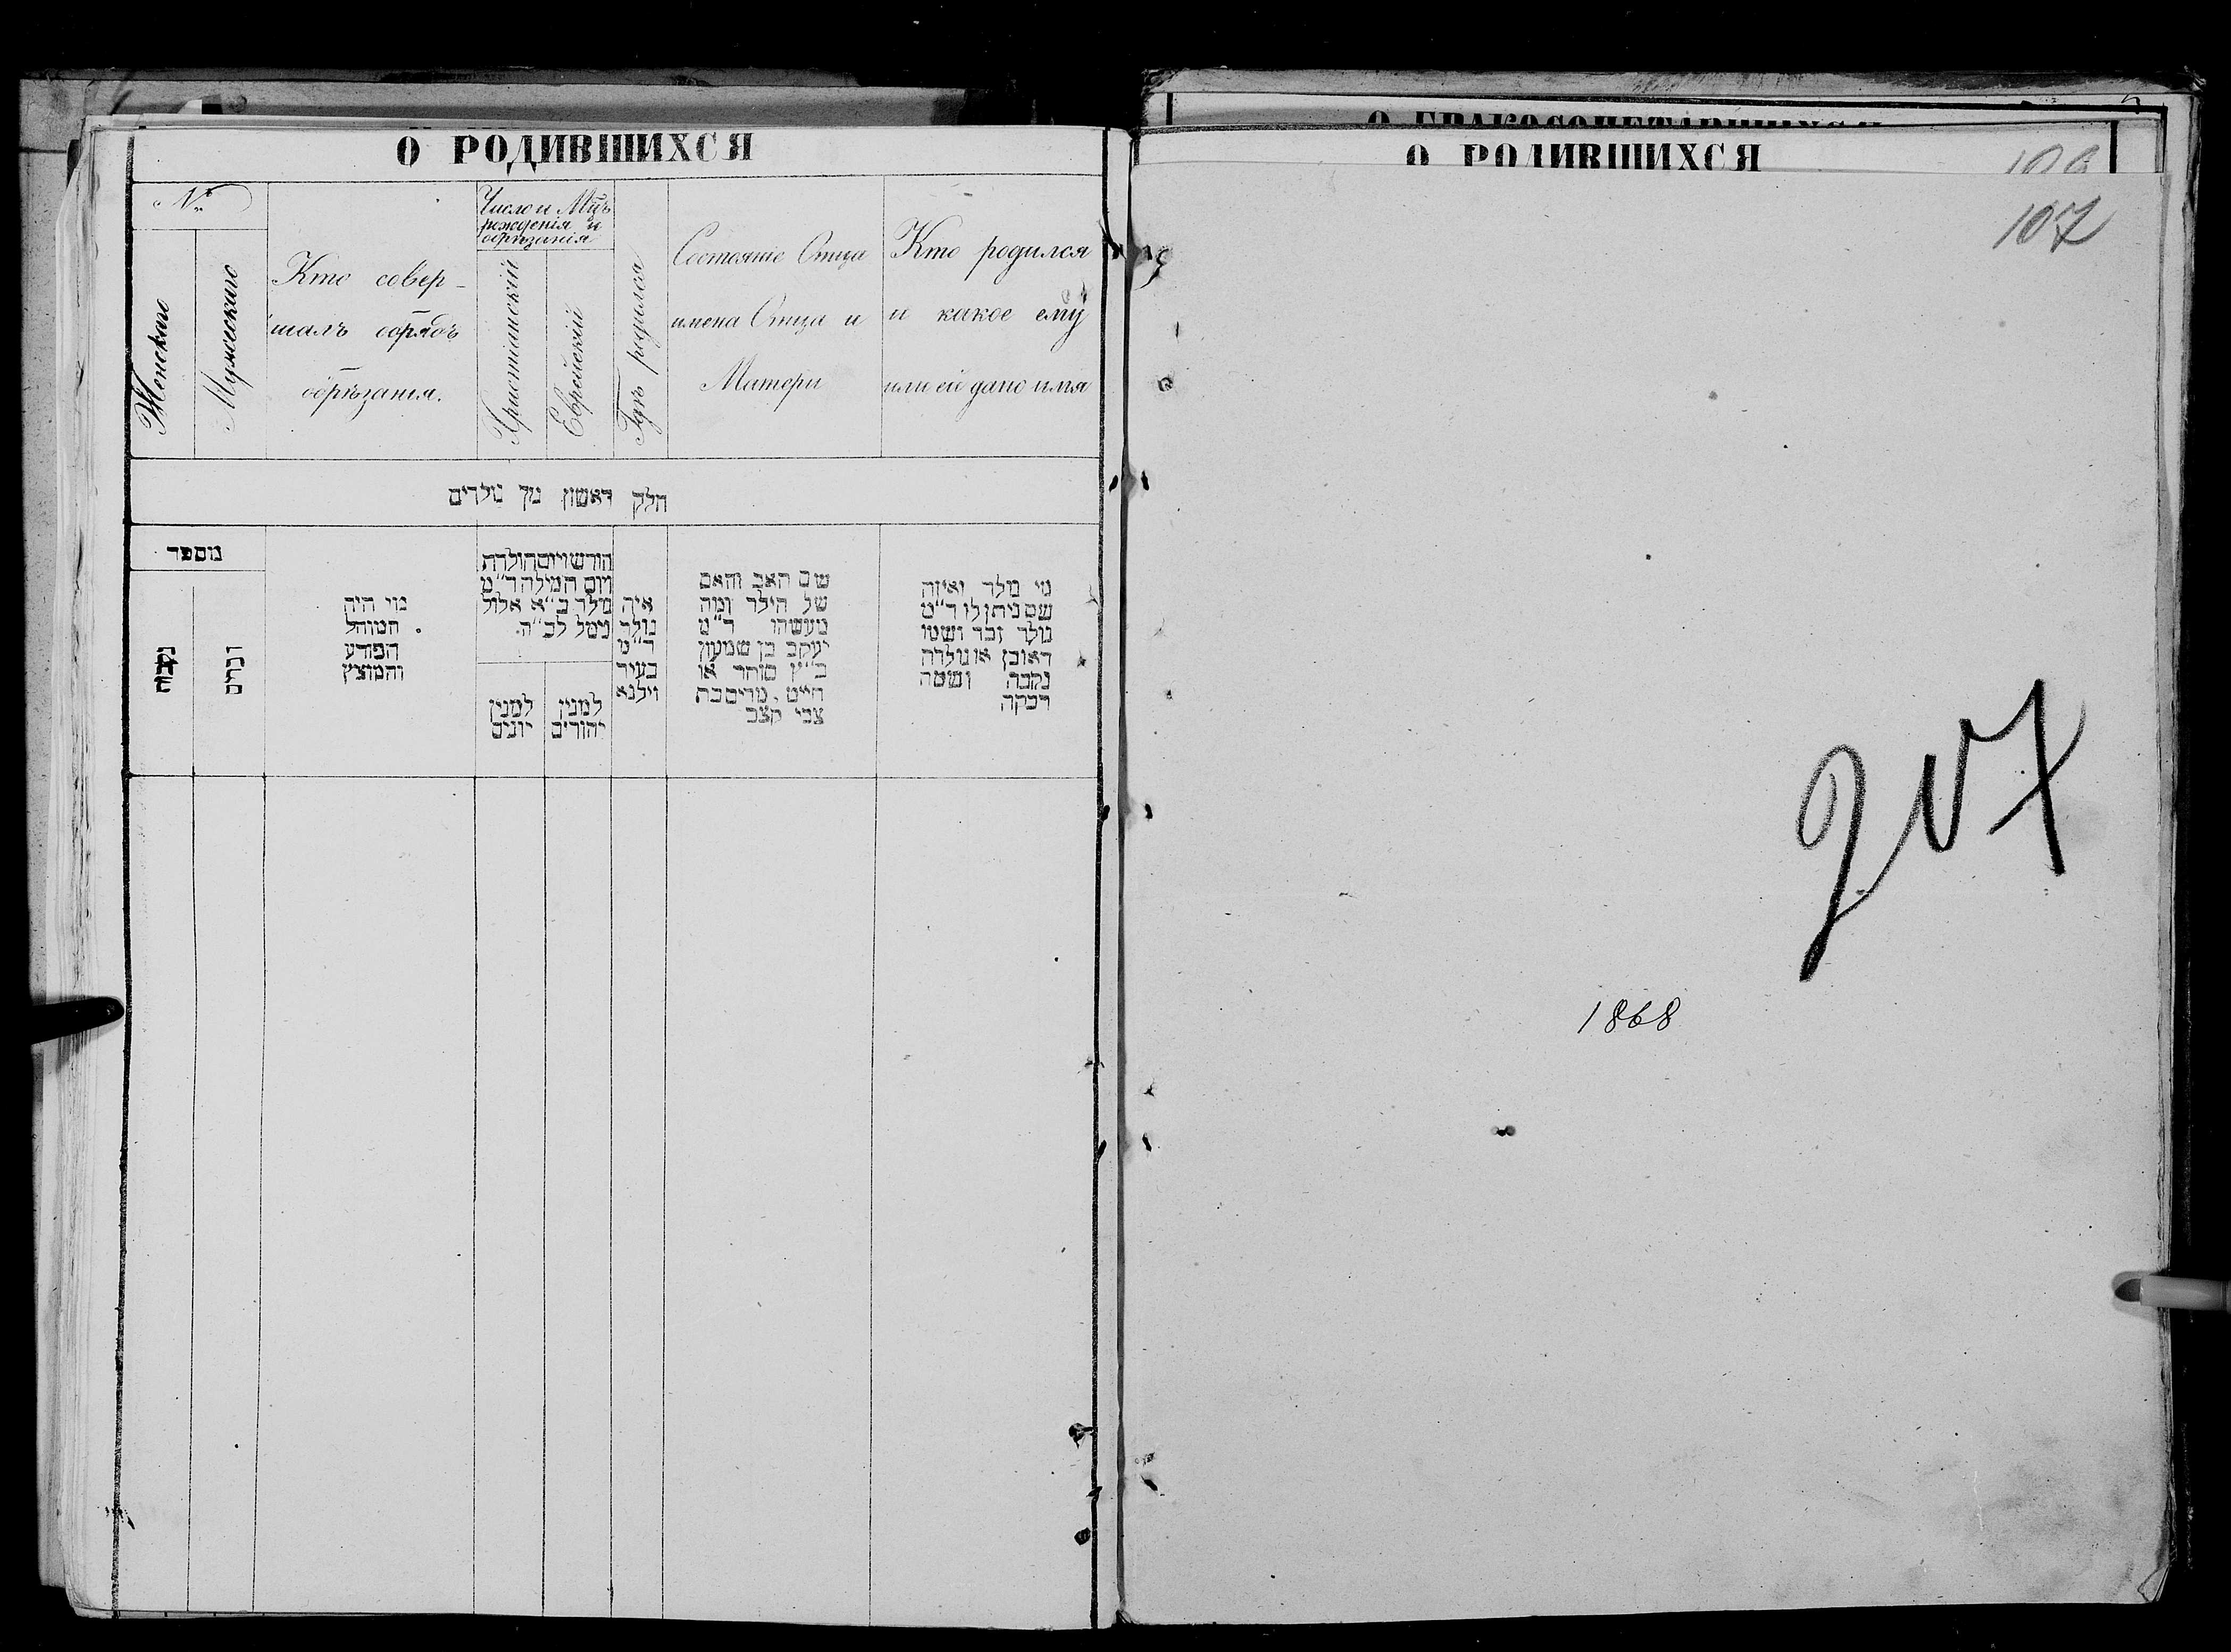 О РОДИВШИХСЯ
№
Женскаго
Мужескаго
Кто совер-
шалъ обрядъ
обрѣзанія.
Число и Мц̃ъ
рожденія и
обрѣзанія
Христіанскій
Еврейскій
Гдѣ родился
Состояніе Отца
имена Отца и
Матери
Кто родился
и какое ему
или ей дано имя
חלק ראשון מן נולדים
מספר
נקבות
זכרים
מי היה
המוהל
הפורע
והמוצץ
חודש ויום הולדת
ויום המילה ד״מ
נולד כ״א אלול
נימל לכ״ה.
למנין
יונים
למנין
יהודים
איה
נולד
ד״מ
בעיר
וילנא
שם האב והאם
של הילד ומה
מעשהו ד״מ
יעקב בן שמעון
כ״ץ סוחר או
חייט. מרים בת
צבי קצב
מי נולד ואיזה
שם ניתן לו ד״מ
נולד זכר ושמו
ראובן או נולדה
נקבה ושמה
רבקה
О БРАКОСОЧЕТАВШИХСЯ
О РОДИВШИХСЯ
106
107
207
1868